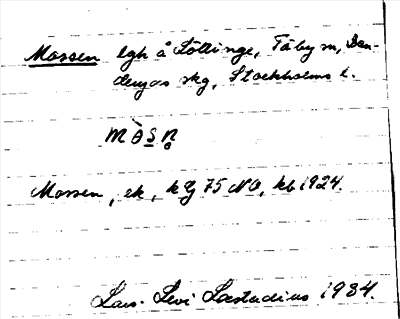 Mossen lgh å Löttinge, Täby sn, Dan-
deryds skg, Stockholms l.
Mossen, ek, kbl 75 NO, kb 1924.
Lars-Levi Læstadius 1934.